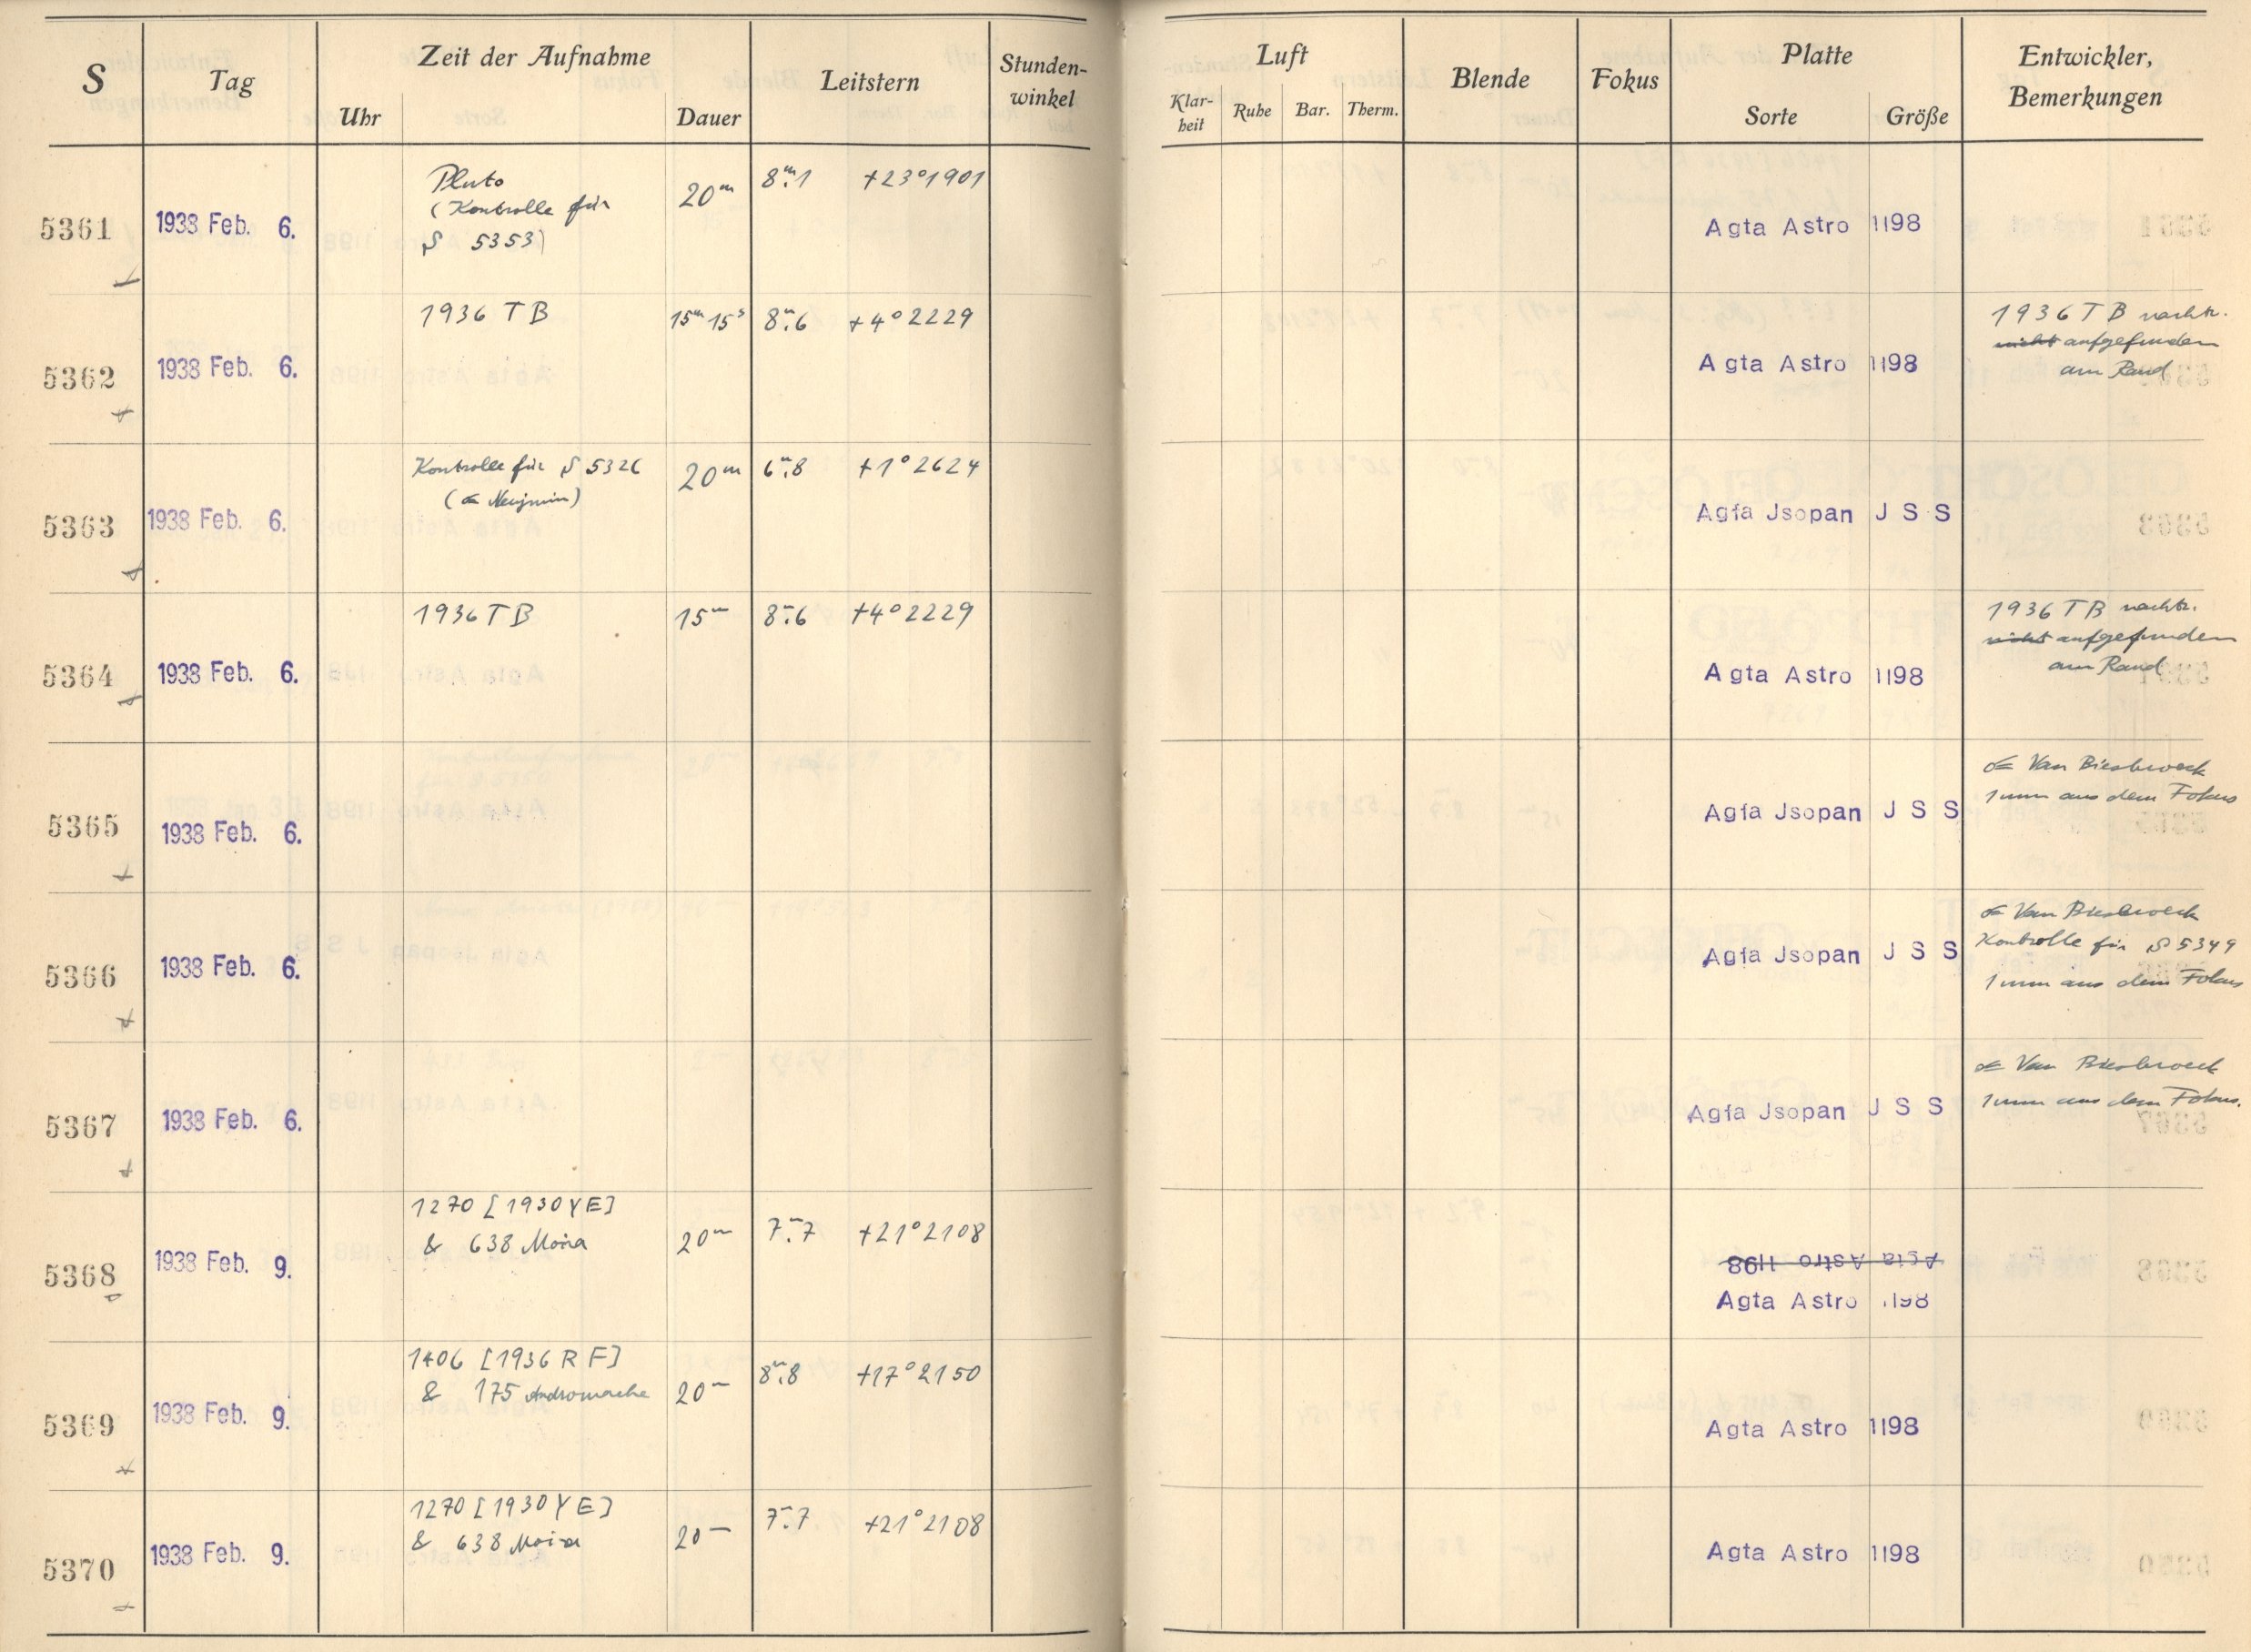 S Tag Zeit der Aufnahme Leitstern Stunden-winkel Luft Blende Fokus Platte Entwickler, Bemerkungen
Uhr Dauer Klar-heit Ruhe Bar. Therm. Sorte Größe
5361 1938 Feb. 6. Pluto 20m 8m.1 +23°1901 Agfa Astro 1198
(Kontrolle für
S 5353)
5362 1938 Feb. 6. 1936 TB 15m 15s 8m.6 +4°2229 Agfa Astro 1198 1936 TB nachtr.
nicht aufgefunden
am Rand
5363 1938 Feb. 6. Kontrolle für S 5326 20m 6m.8 +1°2624 Agfa Jsopan J S S
(☄ Neujmin)
5364 1938 Feb. 6. 1936 TB 15m 8m.6 +4°2229 Agfa Astro 1198 1936 TB nachtr.
nicht aufgefunden
am Rand
5365 1938 Feb. 6. Agfa Jsopan J S S ☄ Van Biesbroeck
1mm aus dem Fokus
5366 1938 Feb. 6. Agfa Jsopan J S S ☄ Van Biesbroeck
Kontrolle für S 5349
1mm aus dem Fokus
5367 1938 Feb. 6. Agfa Jsopan J S S ☄ Van Biesbroeck
1mm aus dem Fokus.
5368 1938 Feb. 9. 1270 [1930 YE] 20m 7m.7 +21°2108 Agfa Astro 1198
& 638 Moira Agfa Astro 1198
5369 1938 Feb. 9. 1406 [1936 RF] 20m 8m.8 +17°2150 Agfa Astro 1198
& 175 Andromache
5370 1938 Feb. 9. 1270 [1930 YE] 20m 7m.7 +21°2108 Agfa Astro 1198
& 638 Moira